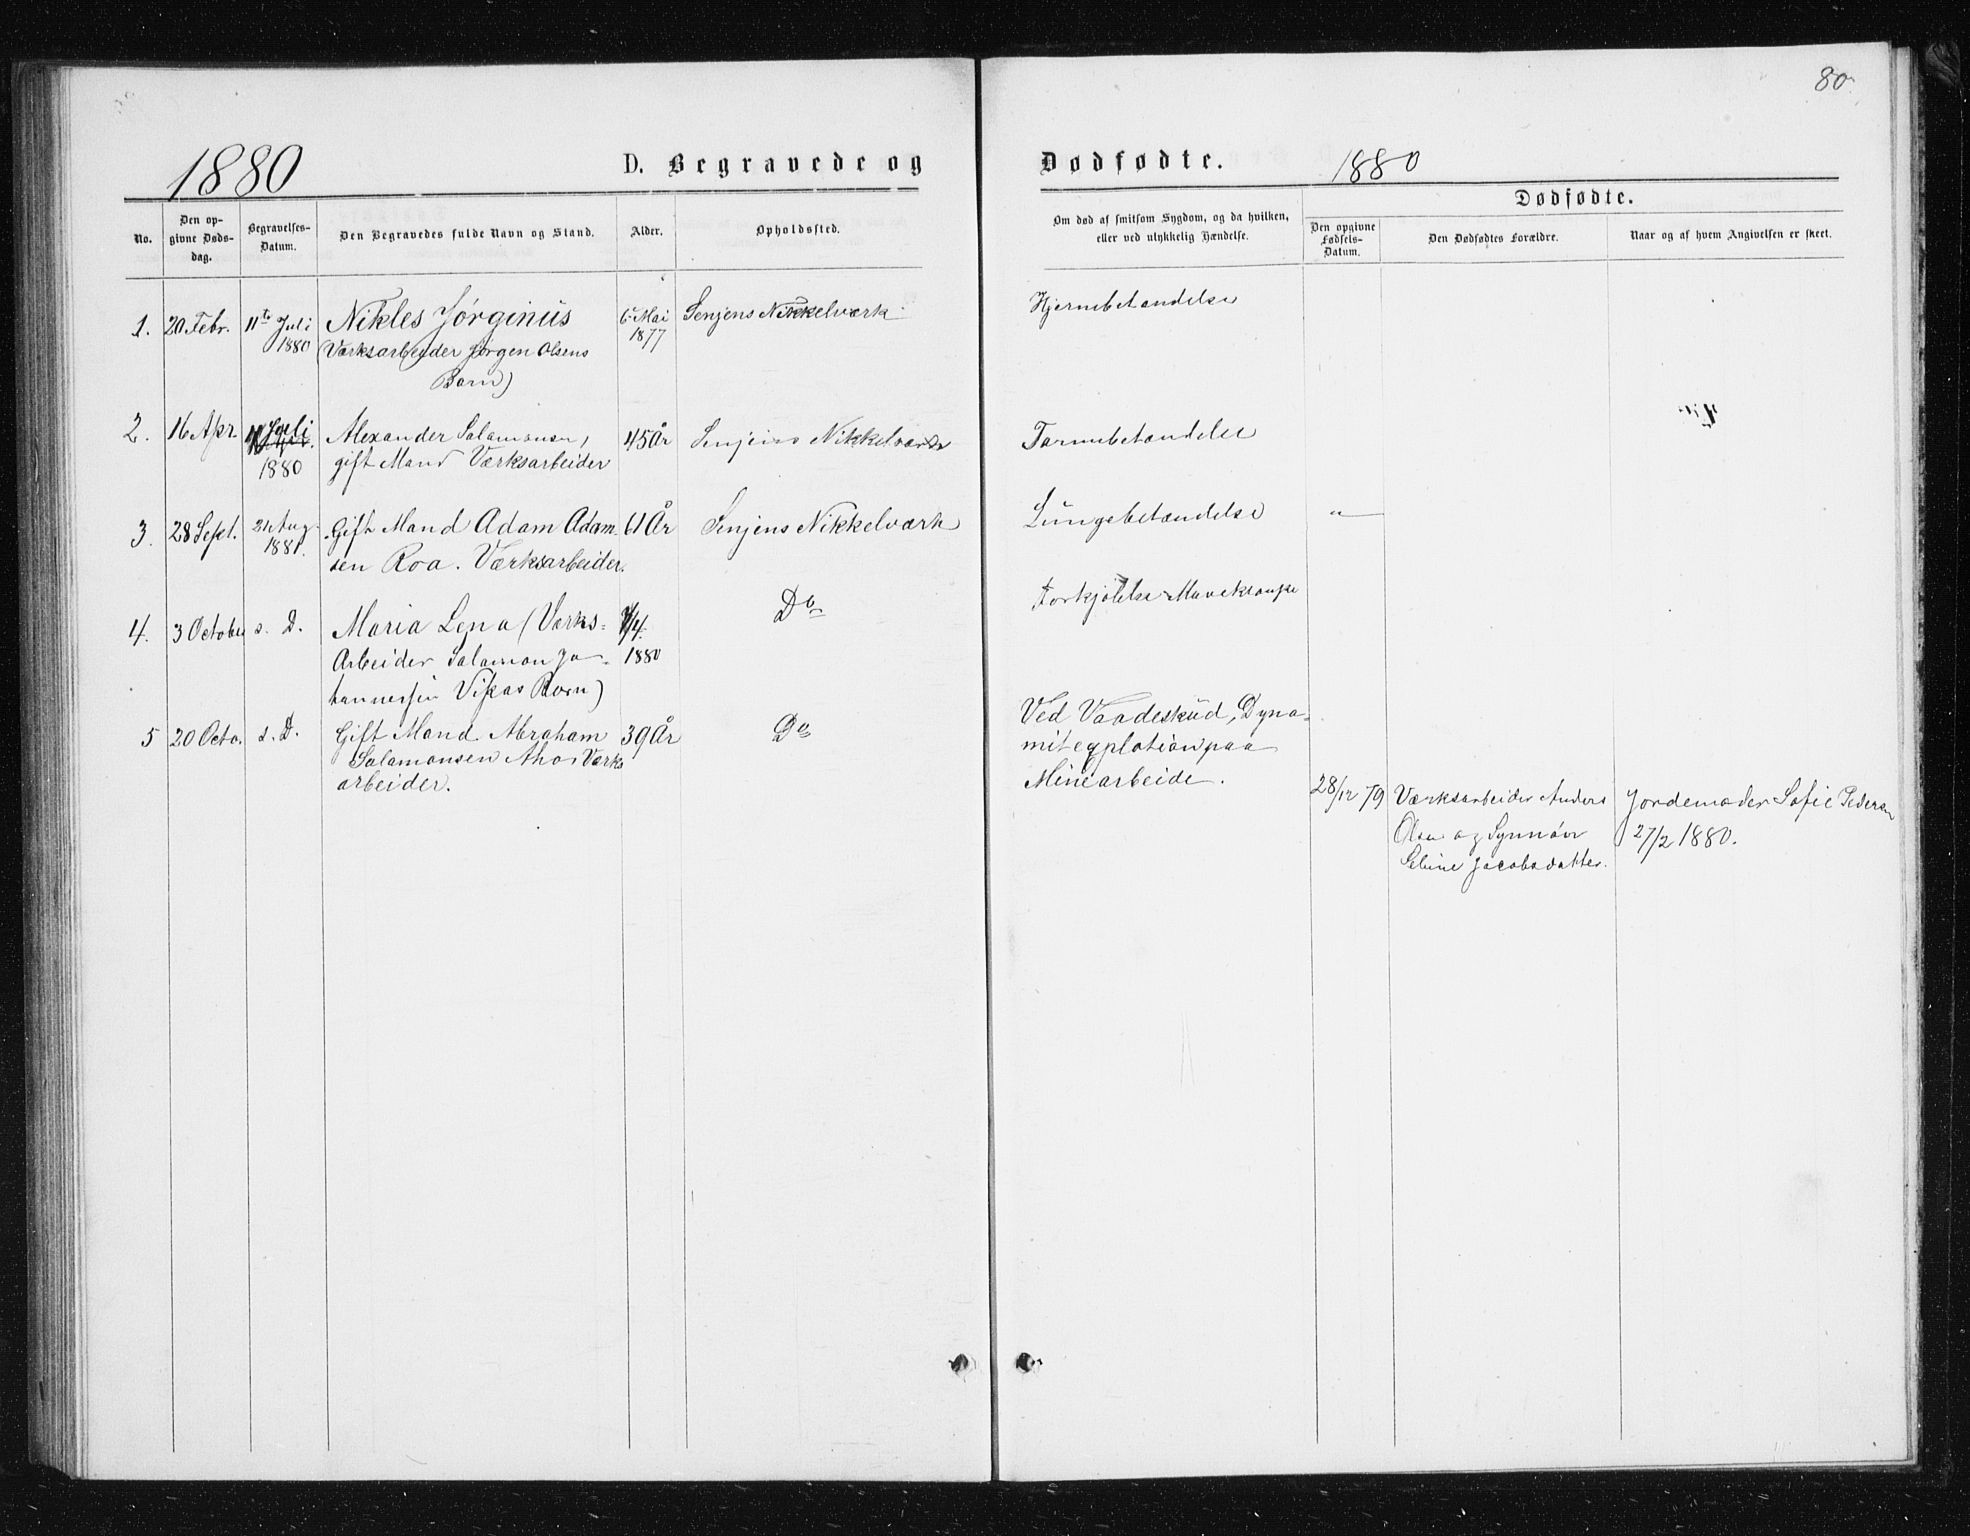 80.
1880
D. Begravede og
Dødfødte.
1880
No.
Den op-
givne Døds-
dag.
Begravelses-
Datum.
Den Begravedes fulde Navn og Stand.
Alder.
Opholdssted.
Om død af smitsom Sygdom, og da hvilken,
eller ved ulykkelig Hændelse.
Dødfødte.
Den opgivne
Fødsels-
Datum.
Den Dødfødtes Forældre.
Naar og af hvem Angivelsen er skeet.
1. 20. Febr. 11te Juli Nikles Jørginius 6 Mai Senjens Nikkelværk Hjernebetændelse
1880 (Værksarbeider Jørgen Olsens 1877
Barn)
2. 16 Apr. 11 Juli Alexander Salamonsen, 45 År Senjens Nikkelværk Tarmebetændelse
1880 gift Mand Værksarbeider
3. 28 Sept. 21 Aug. Gift Mand Adam Adam- 61 År Senjens Nikkelværk Lungebetændelse "
1881. sen Roa. Værksarbeider.
4. 3 October s. D. Maria Lena (Værks- 4/4 Do Forkjølelse Mavekrampe
Arbeider Salamon Jo- 1880
hannessen Barn)
5 20 Octo. s. D. Gift Mand Abraham 39 År Do Ved Vaadeskud, Dyna-
Salamonsen Aho. Værks mitexplotion paa
arbeider. Minearbeide.
28/12 79 Værksarbeider Anders Jordemoder Sofie Pedersen
Olsen og Synnøve 27/2 1880.
Jacobsdatter.